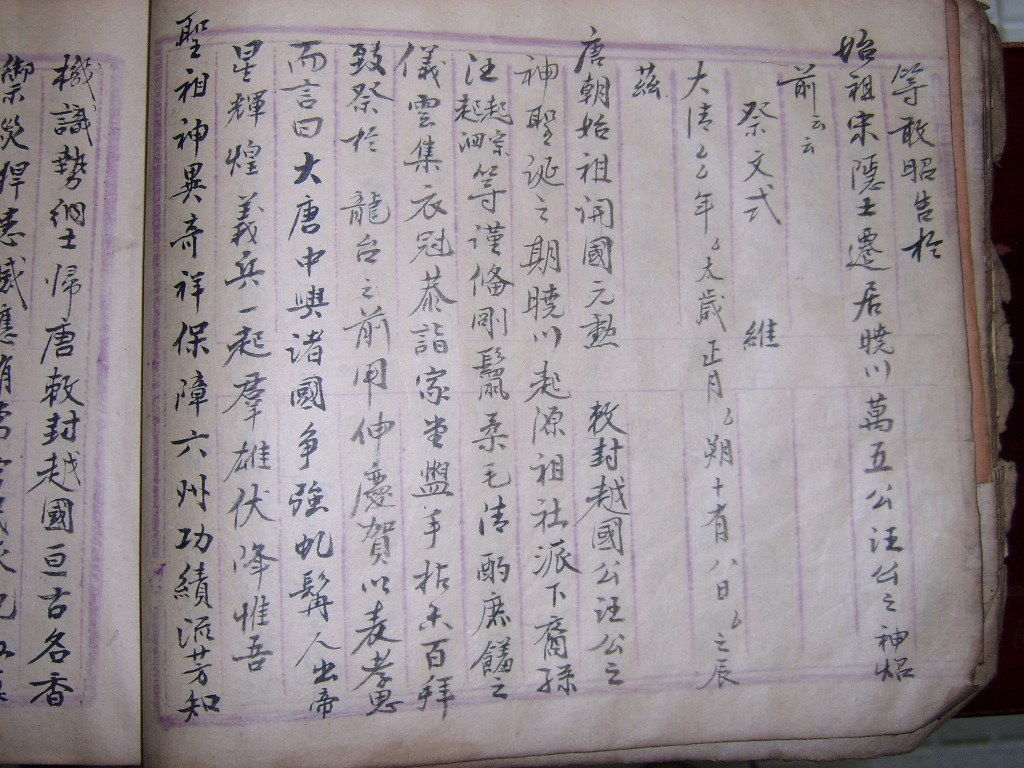 等敢昭告於
始祖宋隱士遷居曉川萬五公汪公之神
前云云
祭文式　維
大清　年　太歲正月　朔十有八日　之辰
茲
唐朝始祖開國元勳　敕封越國公汪公之
神聖誕之期曉川起源祖社派下裔孫
汪起宗起泗等謹備剛鬣柔毛清酌庶饈之
儀雲集衣冠恭詣家堂盥手拈香百拜
致祭於　龍台之前用伸慶賀以表孝思
而言曰大唐中興諸國爭強虬髯人出帝
星輝煌義兵一起羣雄伏降惟吾
聖祖神異奇祥保障六州功績流芳知
機識勢納土歸唐敕封越國亘古名香
禦災捍患感應